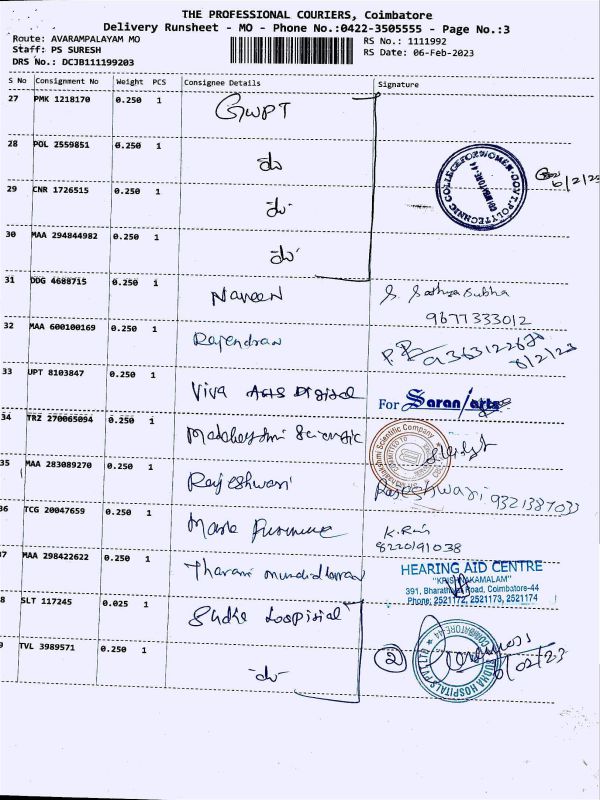 THE PROFESSIONAL COURIERS, Coimbatore
Delivery Runsheet - MO - Phone No.:0422-3505555 - Page No.:3
Route: AVARAMPALAYAM MO
Staff: PS SURESH
DRS No.: DCJB111199203
RS No.: 1111992
RS Date: 06-Feb-2023
S No Consignment No Weight PCS Consignee Details Signature
27 PMK 1218170 0.250 1 GWPT
28 POL 2559851 0.250 1 do
29 CNR 1726515 0.250 1 do
GOVT. POLYTECHNIC COLLEGE FOR WOMEN
COIMBATORE-44
6/2/23
30 MAA 294844982 0.250 1 do
31 DDG 4688715 0.250 1 Naveen S. Sathya Subha
9677333012
32 MAA 600100169 0.250 1 Rajendran
6/2/23
33 UPT 8103847 0.250 1 Viva Arts Digital For Saran arts
34 TRZ 270065094 0.250 1 Scientific
Scientific Company
35 MAA 283089270 0.250 1 Rajeshwari Rajeshwari 9321387033
36 TCG 20047659 0.250 1 K.
8220191038
37 MAA 298422622 0.250 1 Tharani
HEARING AID CENTRE
"KRISHNAKAMALAM"
391, Bharathiyar Road, Coimbatore-44
Phone: 2521172, 2521173, 2521174
38 SLT 117245 0.025 1 Sudha Hospital
39 TVL 3989571 0.250 1 do
2
SUDHA HOSPITALS PVT LTD
COIMBATORE-44
6/02/23